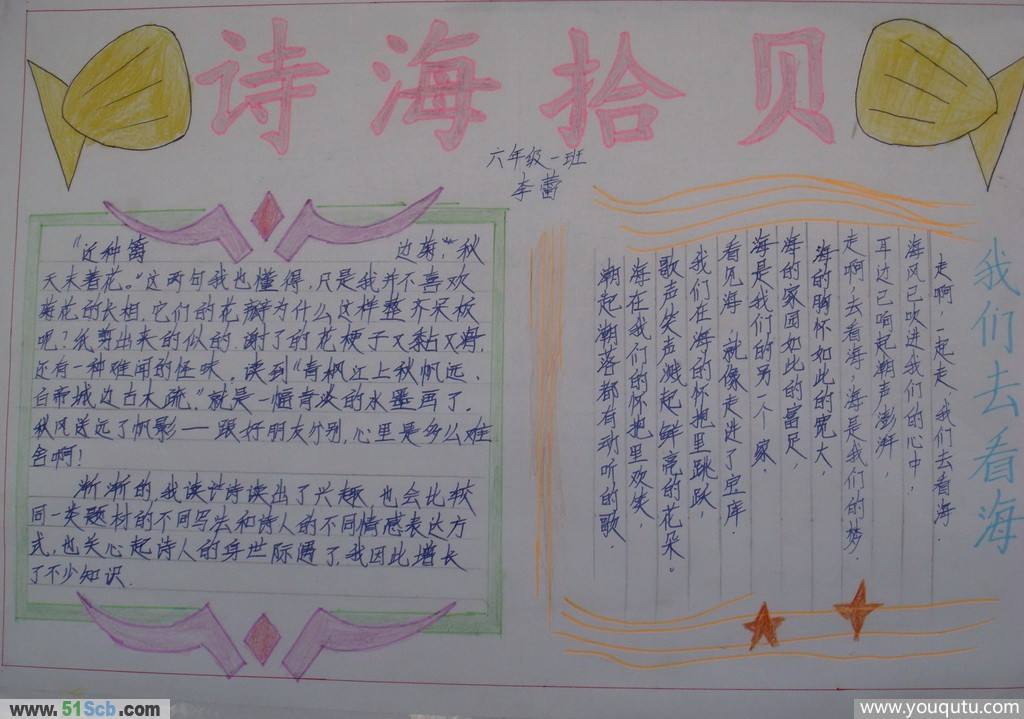 诗海拾贝
六年级一班
李蕾
天未着花。"这两句我也懂得,只是我并不喜欢
菊花的长相,它们的花瓣为什么这样整齐呆板
呢?纸剪出来的似的,谢了的花梗子又黏又滑,
还有一种难闻的怪味。读到《青枫江上秋帆远,
白帝城边古木疏。"就是一幅青淡的水墨画了。
秋风送远了帆影——跟好朋友分别,心里是多么难
舍啊!
渐渐的,我读诗读出了兴趣,也会比较
同一类题材的不同写法和诗人的不同情感表达方
式,也关心起诗人的身世际遇了,我因此增长
了不少知识.
我们去看海
走啊,一起走,我们去看海.
海风已吹进我们的心中,
耳边已响起潮声澎湃,
走啊,去看海,海是我们的梦.
海的胸怀如此的宽大,
海的家园如此的富足,
海是我们的另一个家.
看见海,就像走进了宝库.
我们在海的怀抱里跳跃,
歌声笑声溅起鲜亮的花朵。
海在我们的怀抱里欢笑,
潮起潮落都有动听的歌.
www.51Scb.com
www.youqutu.com